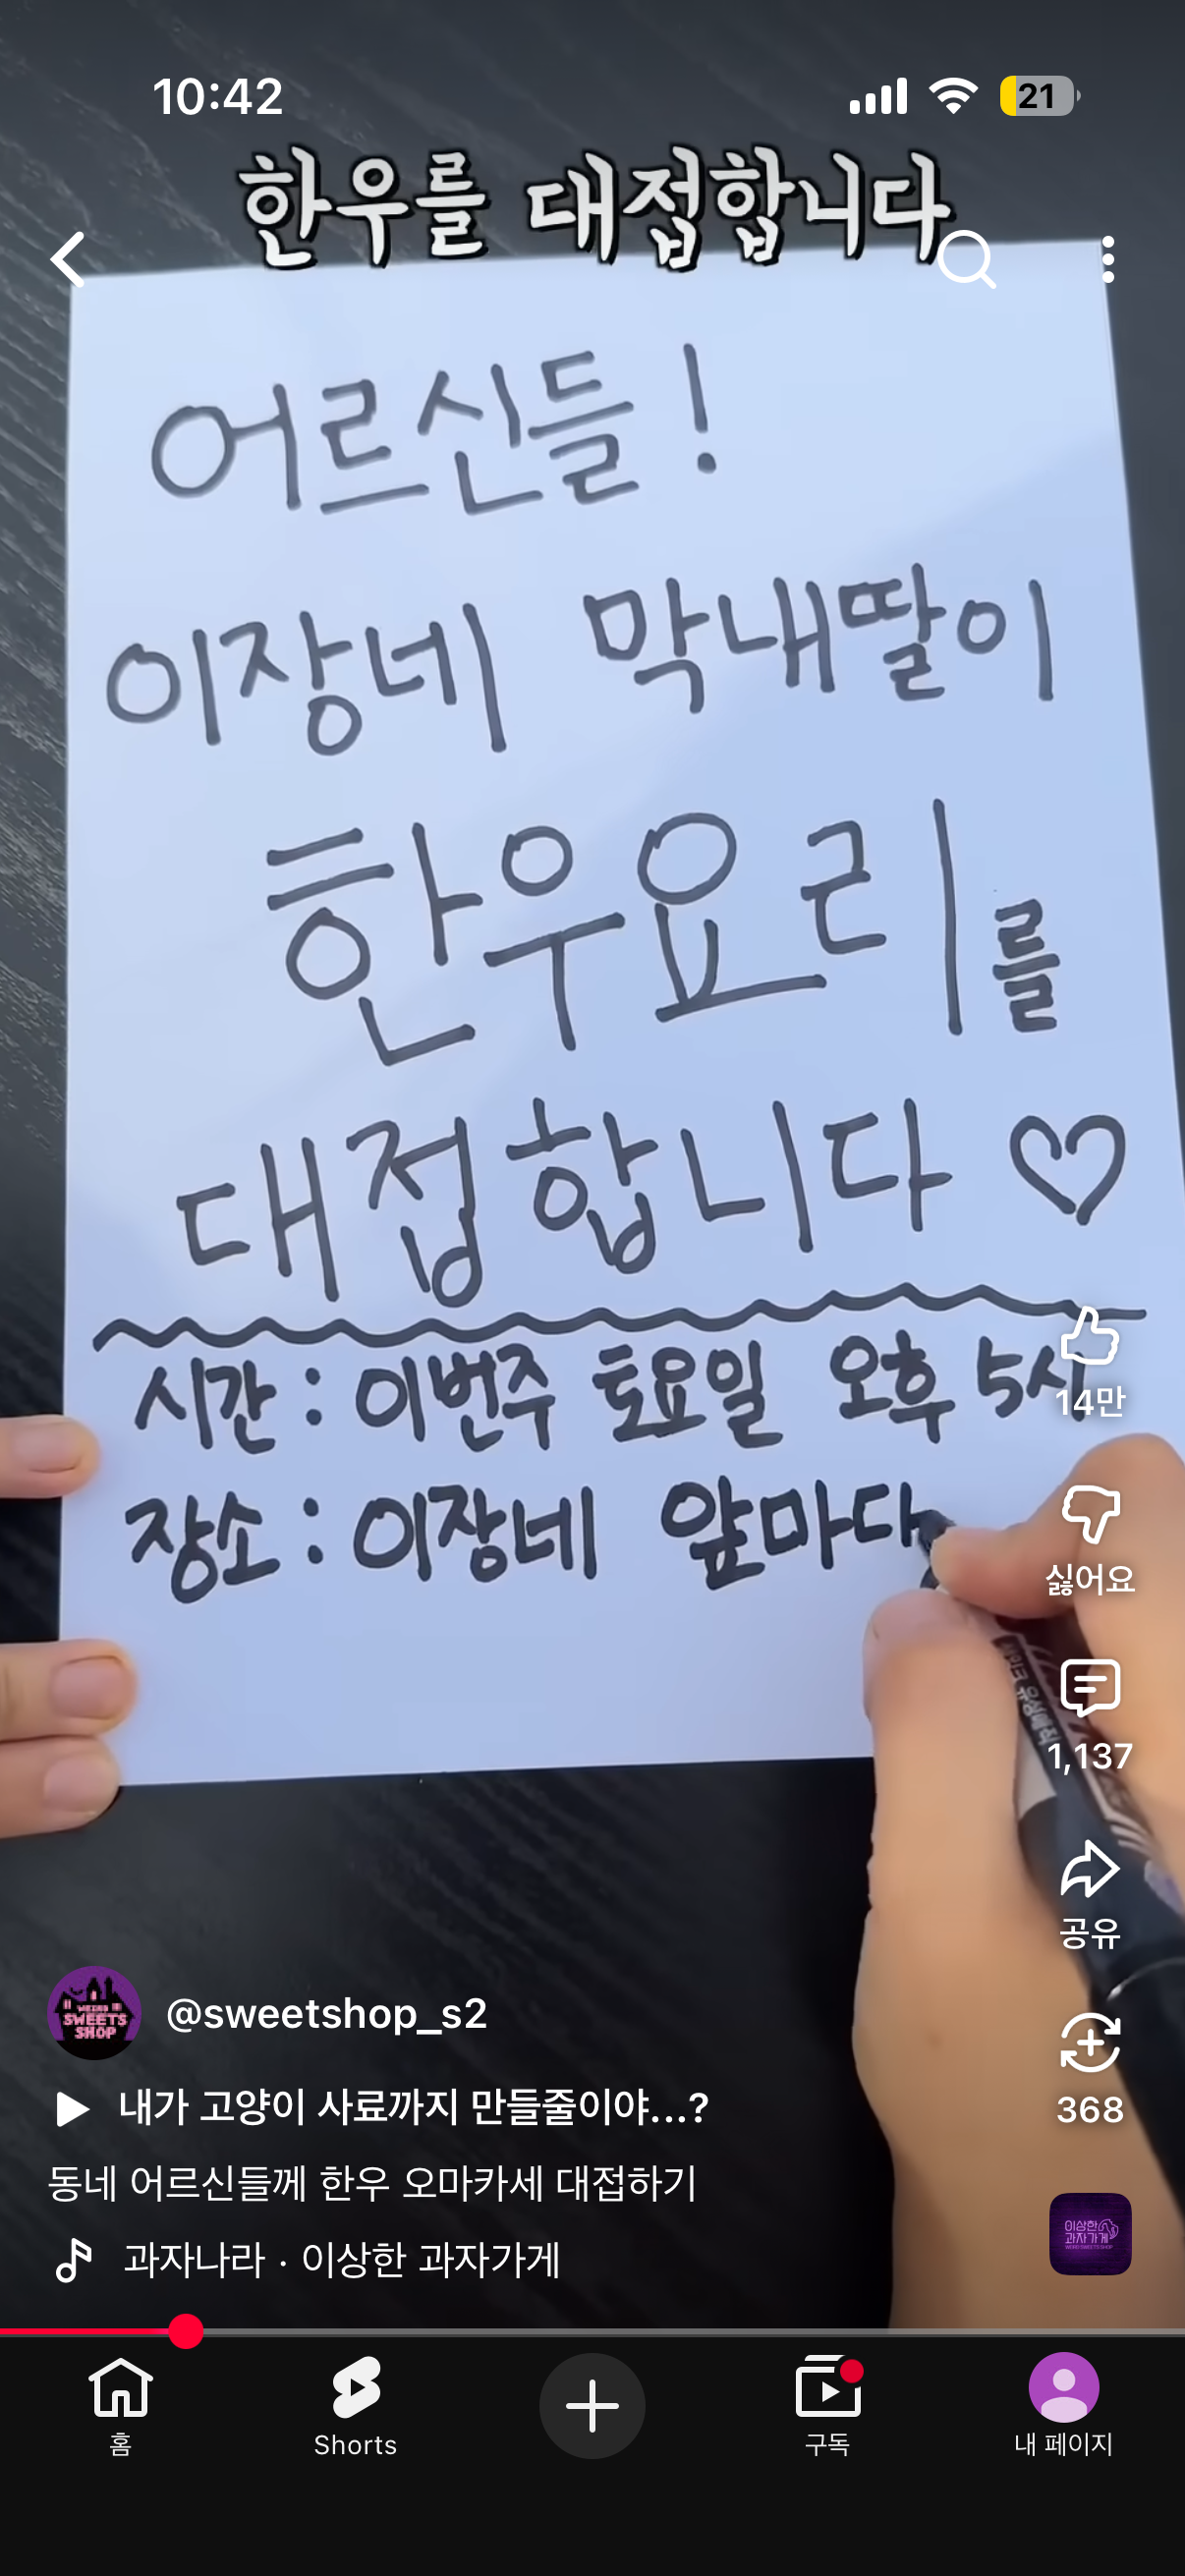 10:42
21
한우를 대접합니다
어르신들!
이장네 막내딸이
한우요리를
대접합니다♡
시간 : 이번주 토요일 오후 5시
장소 : 이장네 앞마다
14만
싫어요
1,137
공유
368
SWEETS
SHOP
@sweetshop_s2
내가 고양이 사료까지 만들줄이야...?
동네 어르신들께 한우 오마카세 대접하기
과자나라 · 이상한 과자가게
이상한
과자가게
홈
Shorts
구독
내 페이지